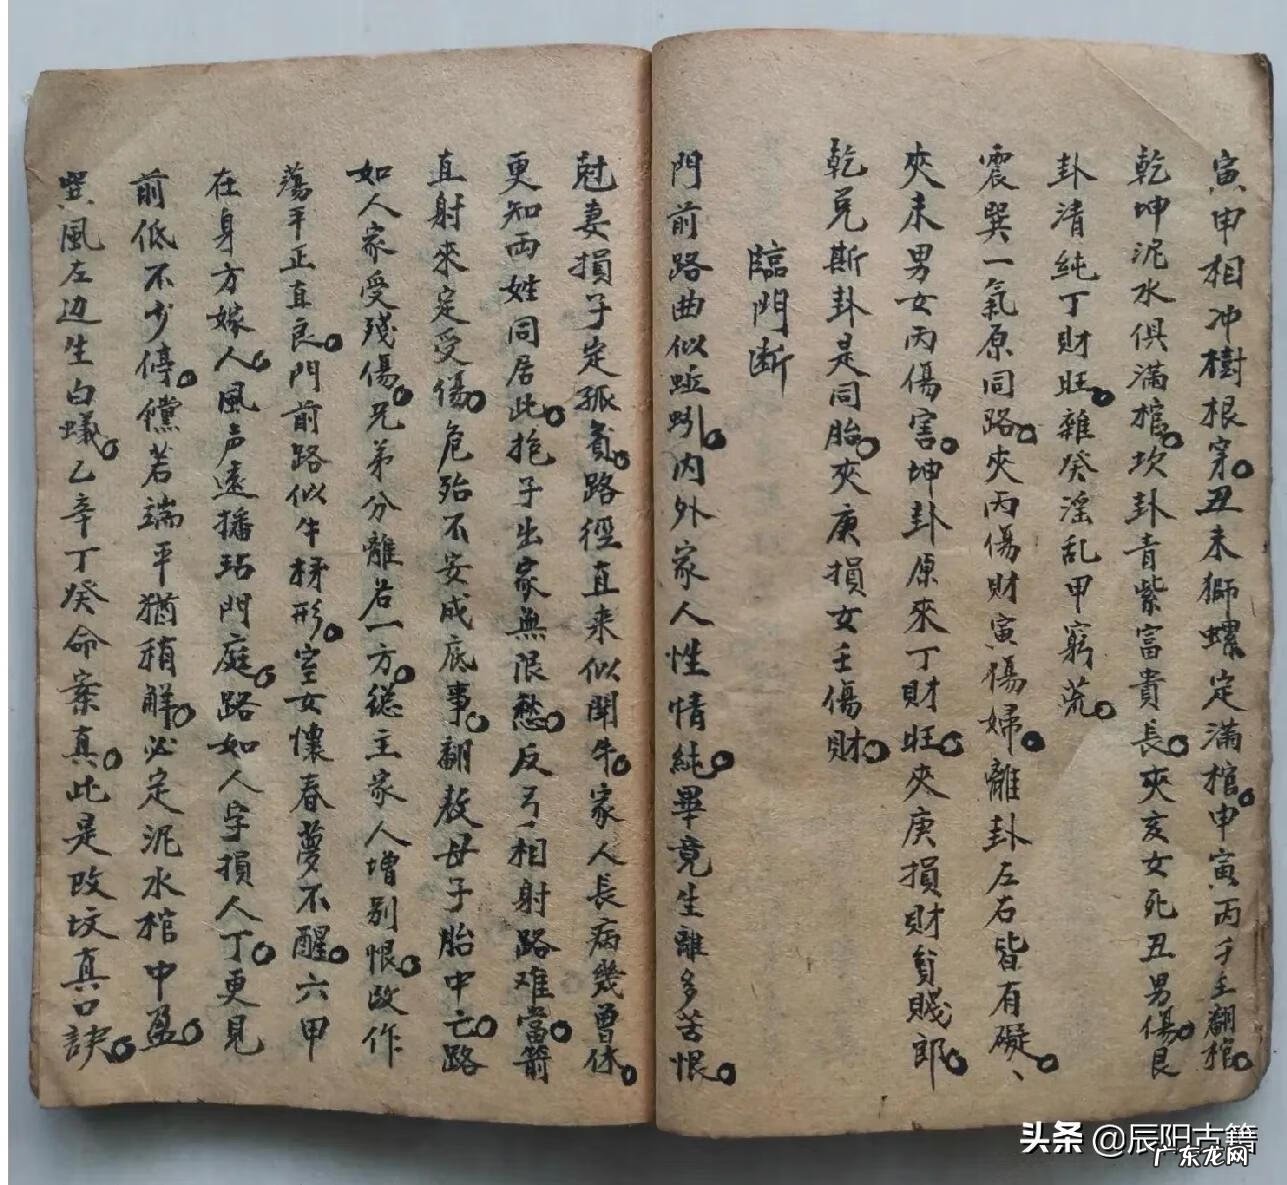 寅申相冲樹根穿。丑未獅螺定滿棺。申寅丙子壬翻棺。
乾坤泥水俱滿棺。坎卦青紫富貴長。夾亥女死丑男傷。艮
卦清純丁財旺。雜癸淫乱甲窮荒。
震巽一氣原同路。夾丙傷財寅傷婦。離卦左右皆有礙、
夾未男女丙傷害。坤卦原來丁財旺。夾庚損財貧賤郎。
乾兌斯卦是同胎。夾庚損女壬傷財。
臨門断
門前路曲似蚯蚓。内外家人性情純。畢竟生離多苦恨。
尅妻損子定孤貧。路徑直来似閗牛。家人長病幾曾休。
更知両姓同居此。抱子出家無限愁。反弓相射路难當。箭
直射來定受傷。危殆不安成底事。翻教母子胎中亡。路
如人家受殘傷。兄弟分離各一方。縂主家人增别恨。改作
蕩平正直良。門前路似牛梯形。室女懷春夢不醒。六甲
在身方嫁人。風声遠播玷門庭。路如人字損人丁。更見
前低不少停。儻若端平猶稍解。必定泥水棺中盈。
巽風左边生白蟻。乙辛丁癸命案真。此是改坟真口訣。
头条 @辰阳古籍
广东龙网